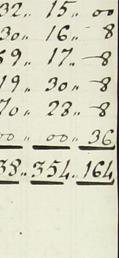 32.. 15.. 00
30.. 16.. 8
59.. 17.. 8
19.. 30.. 8
70.. 28.. 8
00.. 00.. 36
38.. 354.. 164